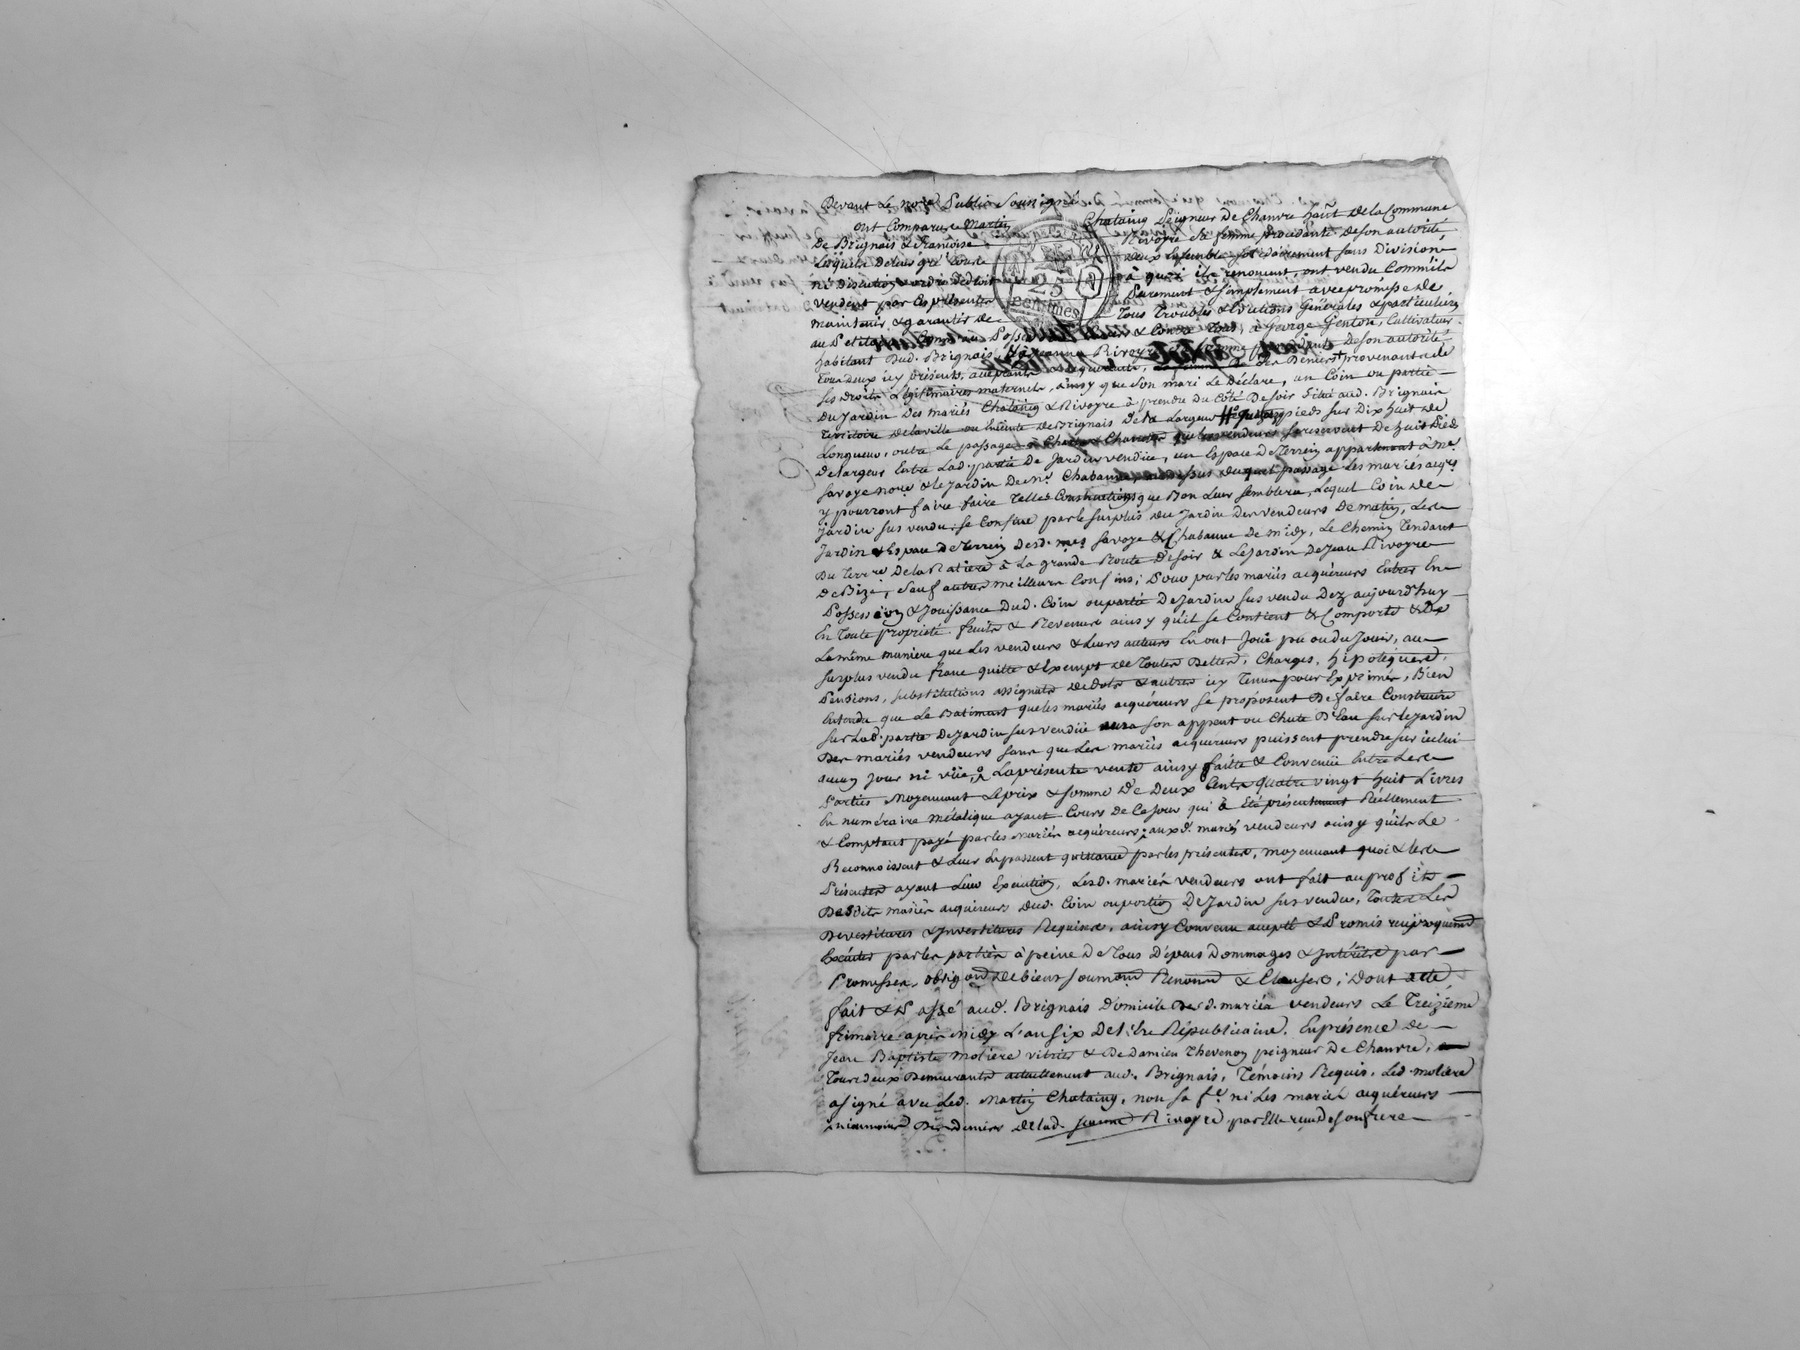 Devant Le no.re Public Soussigné
ont Comparu Martin Chataing Peigneur De Chanvre hañt De la Commune
De Brignais & francoise Rivoyre Sa femme procédante De son autorité,
Lesquels De Leur gré Tous deux Ensemble solidairement sans Division
ni Discution ordre De Droit à quoi ils renoncent, ont vendu Comm'ils
vendent par Ces présentes Purement & simplement avec promesse De
maintenir & garantir De Tous Troubles & Evictions Générales & particulieres
au Pet. & Contre Tous, à George Genton, Cultivateur
habitant Dud. Brignais, & Jeanne Rivoyre femme procédante De son autorité
Tous deux icy présents, acceptants & acquerants, Des Deniers + provenants de
ses Droits Légitimaires maternels, ainsy que Son mari Le Déclare, un Coin ou partie
Du Jardin Des mariés Chataing & Rivoyre à prendre Du Côté De soir Situé aud. Brignais
Territoire De la ville ou Enceinte De Brignais De la Largeur pieds sur Dix huit De
Longueur, outre Le passage que Les vendeurs se reservent De huit Pieds
De Largeur Entre Lad. partie De Jardin vendüe, un Espace De Terrein appartenant à me.
Savoye no.re & le Jardin De mr. Chabanne, au dessus duquel passage Les mariés acqrs
y pourront faire faire Telles Constructions que Bon Leur semblera, Lequel Coin De
Jardin sus vendu se Confine par le surplus du Jardin Des vendeurs De matin, Les
Jardin & Espace De Terrein Desd. mes Savoye & Chabanne De midy, Le Chemin Tendant
Du Terre De la Ratiere à La grande Route De soir & Le Jardin De Jean Rivoyre
De Bize, sauf autres meilleurs Confins; Pour par les mariés acquéreurs Entrer En
Possession & Jouissance Dud. Coin ou partie De Jardin sus vendu Dez aujourd'huy
En Toute propriété fruits & Revenus ainsy qu'il se Contient & Comporte & De
La même maniere que Les vendeurs & Leurs auteurs En ont Joui pu ou du Jouir, au
surplus vendu franc quitte & Exempt De Toutes Dettes, Charges, hipotéques,
Pensions, substitutions assignats De Dots & autres icy Tenus pour Exprimés, Bien
Entendu que Le Batiment que les mariés acquéreurs se proposent De faire Construire
sur Lad. partie De Jardin sus vendüe aura son appent ou Chute D'Eau sur le Jardin
Des mariés vendeurs sans que Les mariés acquereurs puissent prendre sur iceluy
aucun Jour ni vüe, La présente vente ainsy faitte & Convenüe Entre Les
Parties Moyennant Le prix & somme De Deux Cents Quatre vingt huit Livres
En numéraire métalique ayant Cours De Ce Jour qui à Eté présentement Réellement
& Comptant payé par les Mariés acquéreurs auxd. mariés vendeurs ainsy qu'ils Le
Reconnoissent & Leur En passent quittance par les présentes, moyennant quoi & Les
Présentes ayant Leur Exécution, Lesd. mariés vendeurs ont fait au profit
Desdits mariés acquéreurs Dud. Coin ou portion De Jardin sus vendu, Toutes Les
Devestitures & Investitures Requises, ainsy Convenu accepté & Promis reciproquemt
Exécuter par les parties à peine De Tous Dépens Dommages & Intérêts par
Promesses, obligons De biens soumons Renons & Clauses; Dont acte,
fait & Passé aud. Brignais Domicile Desd. mariés vendeurs Le Treizieme
frimaire après midy L'an six De l'Ere Républicaine. En présence De
Jean Baptiste Moliere vitrier & De Damien Thevenon peigneur De Chanvre,
Tous deux Demeurants actuellement aud. Brignais, Témoins Requis, Led. moliere
a signé avec Led. Martin Chataing, non sa fe. ni Les mariés acquéreurs
Des deniers De lad. Jeanne Rivoyre par Elle